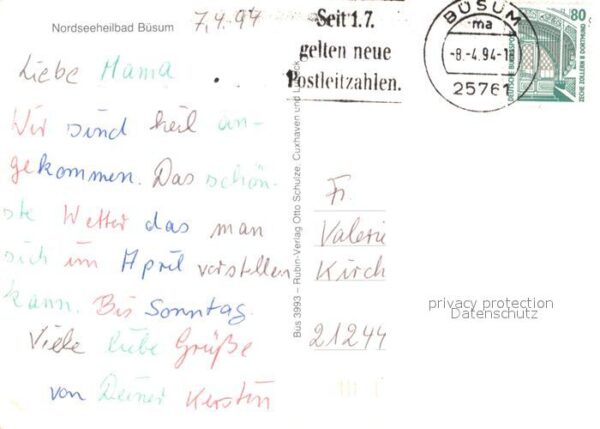 Nordseeheilbad Büsum
7.4.94
Liebe Mama.
Wir sind heil an-
gekommen. Das schön-
ste Wetter das man
sich im April vorstellen
kann. Bis Sonntag.
Viele liebe Grüße
von Deiner Kerstin
Bus 3993 – Rubin-Verlag Otto Schulze, Cuxhaven und
Seit 1.7.
gelten neue
Postleitzahlen.
BÜSUM
ma
-8.-4.94-1
25761
80
DEUTSCHE BUNDESPOST
ZECHE ZOLLERN II DORTMUND
Fr.
Valerie
Kirch
21244
privacy protection
Datenschutz